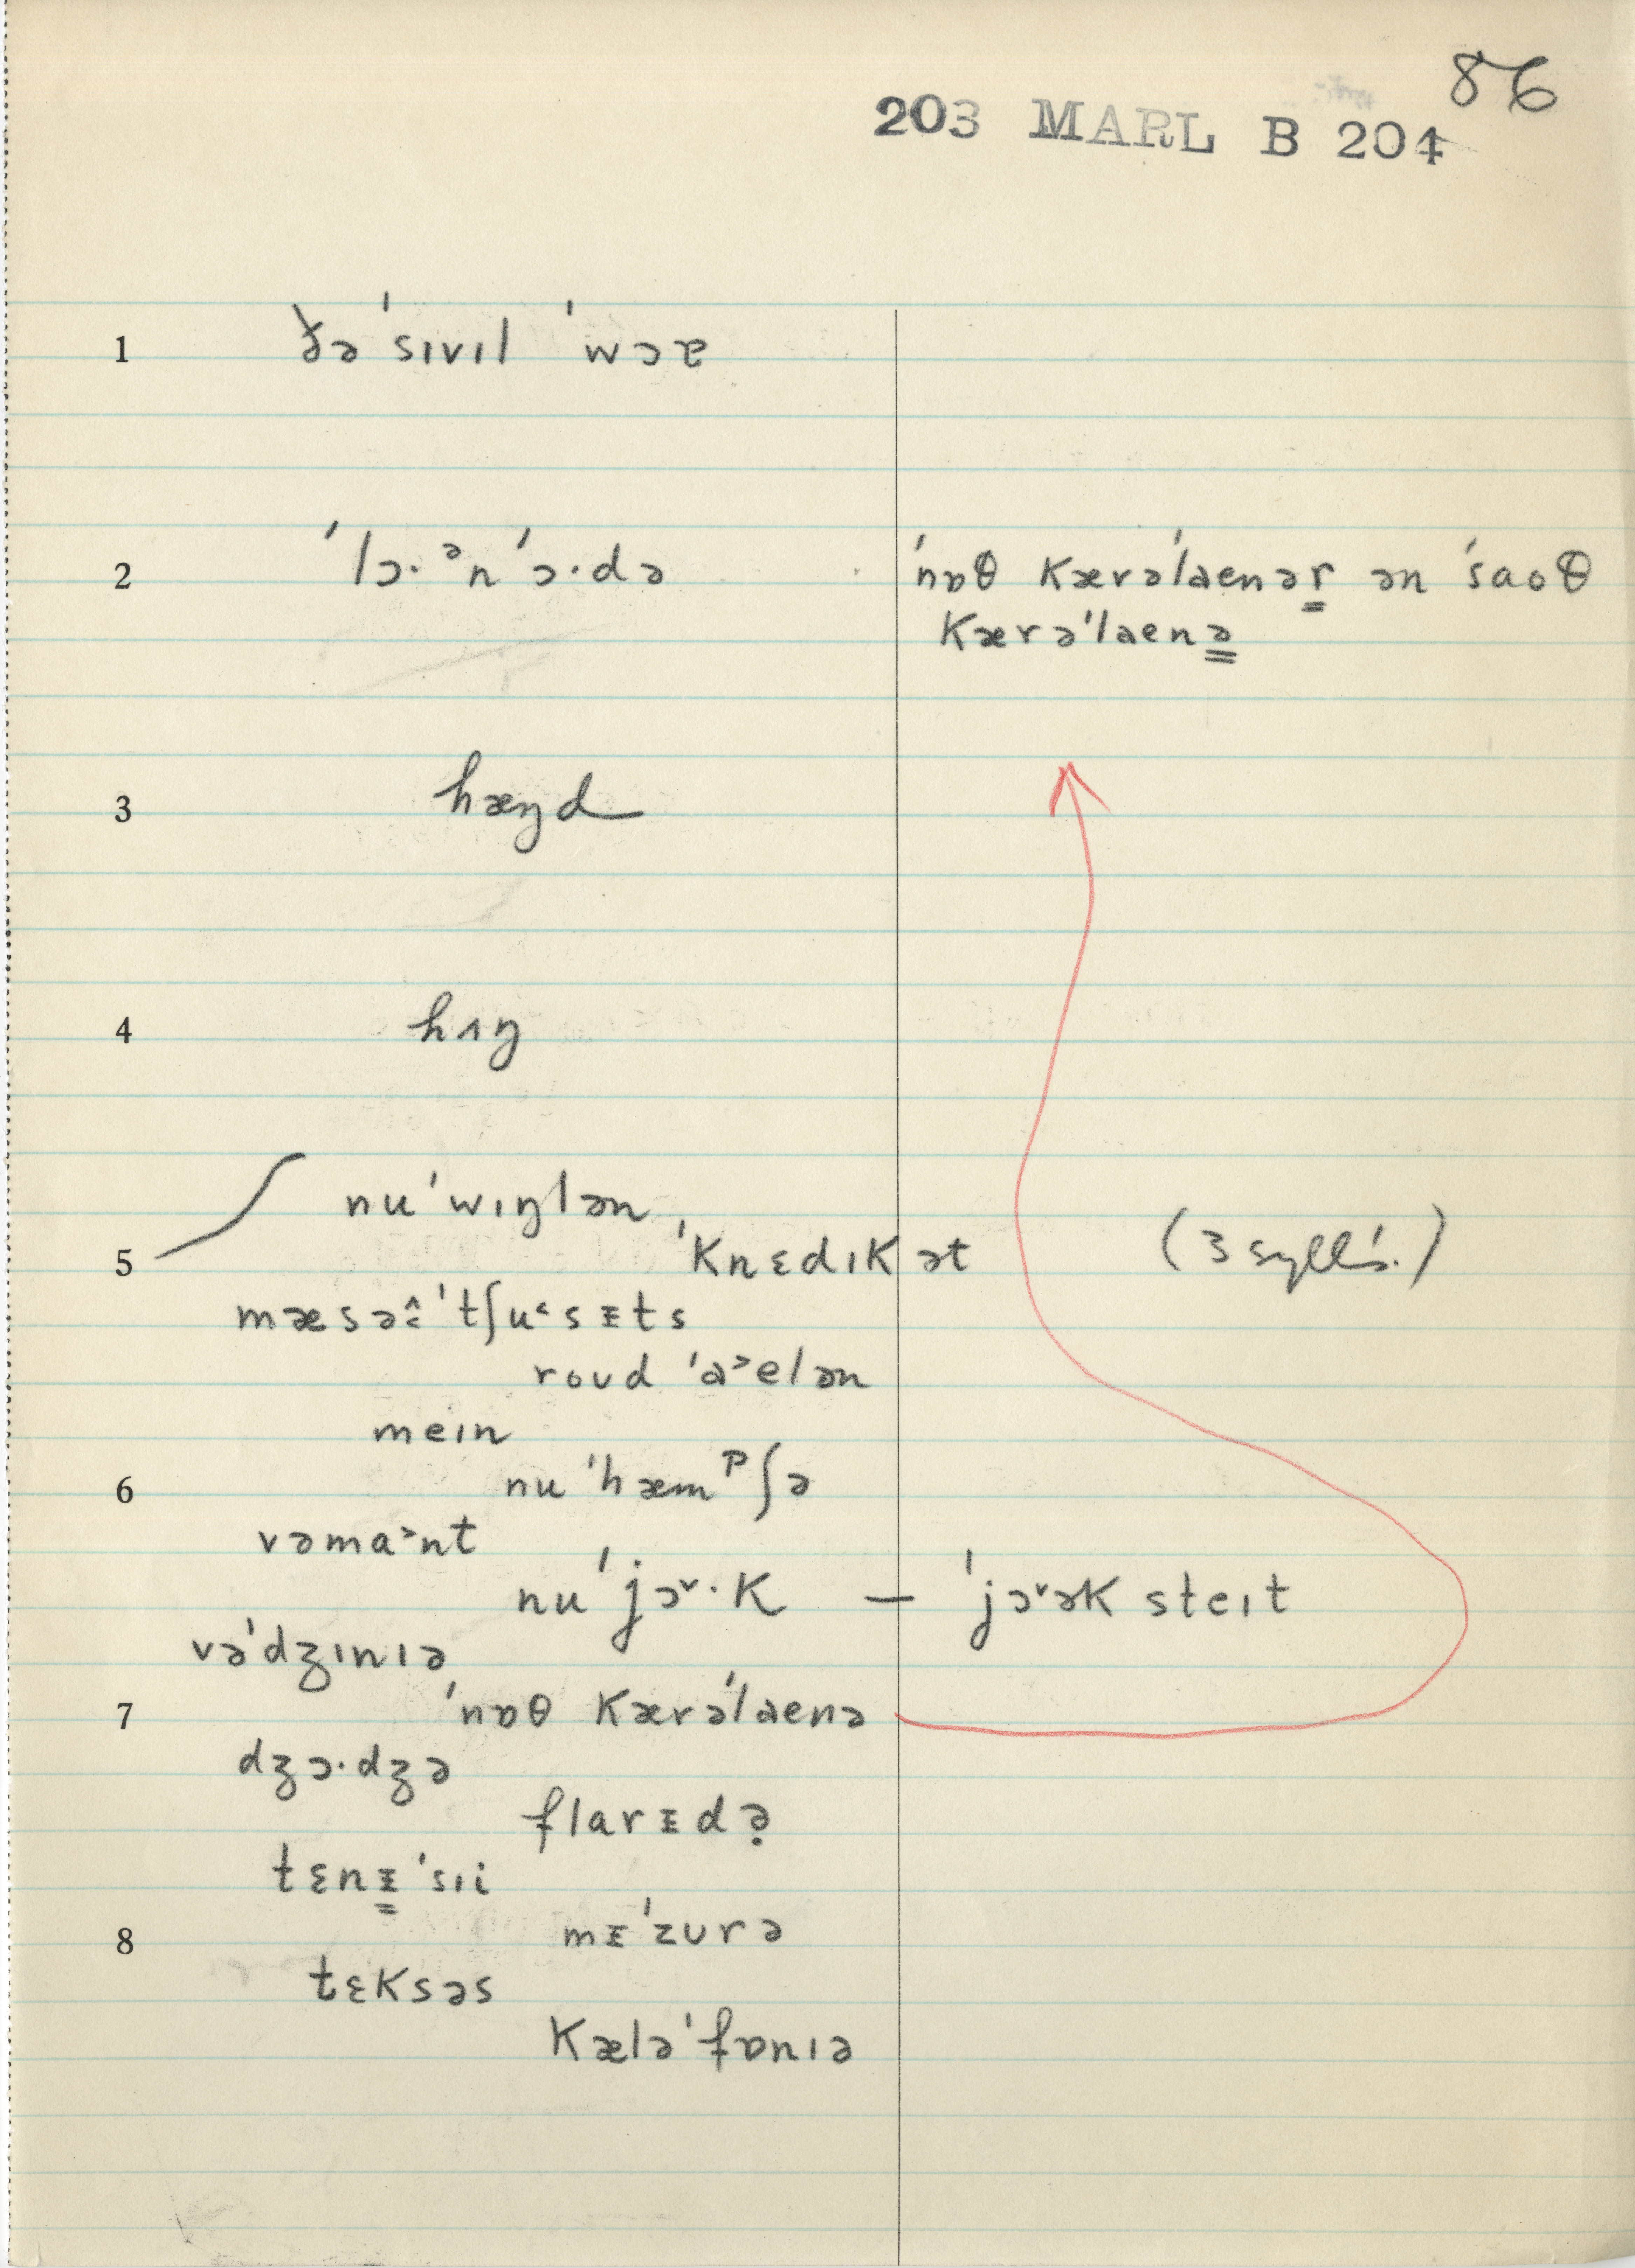 86
203 MARL B 204
1 ðə 'sɪvɪl 'wɔɐ
2 'lɔ·ᵊn 'ɔ·də 'nɒθ kærə'laenər̳ ən 'saoθ
kærə'laenə̳
3 hæŋd
4 hʌŋ
nu'wɪŋlən
5 'knɛdɪkət (3 sylls.)
mæsə^'tʃu˂sᵻts
roʊd 'a˃elən
meɪn
6 nu'hæmᵖʃə
vəma˃nt
nu'jɔ˅·k – 'jɔ˅ək steɪt
və'dʒɪnɪə
7 'nɒθ kærə'laenə
dʒɔ·dʒə
flarᵻdə̣
tɛnᵻ̳'sɪi
8 mᵻ'zʊrə
tɛksəs
kælə'fɒnɪə